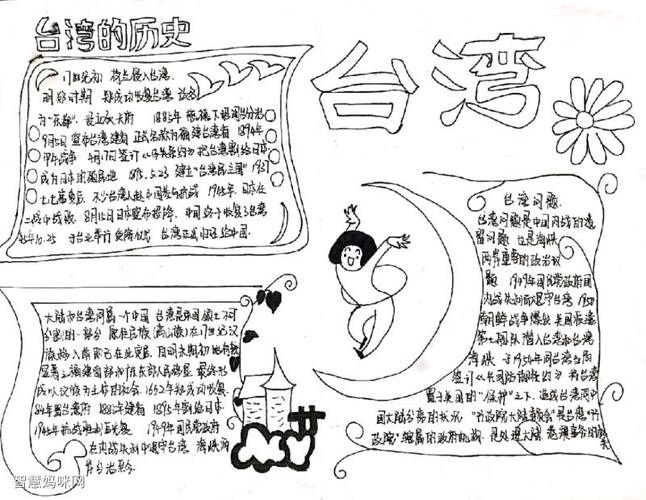 台湾的历史
台湾
荷兰侵入台湾.
明郑时期 郑成功收复台湾 改名
为"东都". 设立承天府 1885年
9月5日 宣布台湾建省 正式名称为福建台湾省 1894年
甲午战争 4月17日签订《马关条约》把台湾割给日本
成为日本的殖民地 1895.5.23 建立"台湾民主国" 1937
七七事变后 不少台湾人赴中国参与抗战 1945年 日本在
二战中战败 8月15日日本宣布投降. 中国
45年10.25 于台北举行受降仪式 台湾正式归还给中国.
台湾问题
台湾问题是中国内战的遗
留问题 也是海峡
两岸重要的政治议
题 1949年国民党政府因
内战失利而退守台湾 1950
朝鲜战争爆发 美国派遣
第七舰队 潜入台湾和台湾
海峡 于1954年同台湾当局
签订《共同防御条约》将台湾
置于美国的"保护"之下. 造成台湾同中
国大陆分离的状况 "行政院大陆委员会"是台湾"行
政院"编属的政府机构. 是处理大陆
大陆和台湾同属一个中国 台湾是中国领土不可
分割的一部分 原住民族(高山族)在17世纪汉
族移入前即已在此定居. 自明末期初
最终形
成以汉族为主体的社会. 1662年郑成功收复.
84年置台湾府 1885年建省 1895年割给日本
1945年抗战胜利后光复 1949年国民党政府
在内战失利中退守台湾 海峡两
岸分治至今
智慧妈咪网